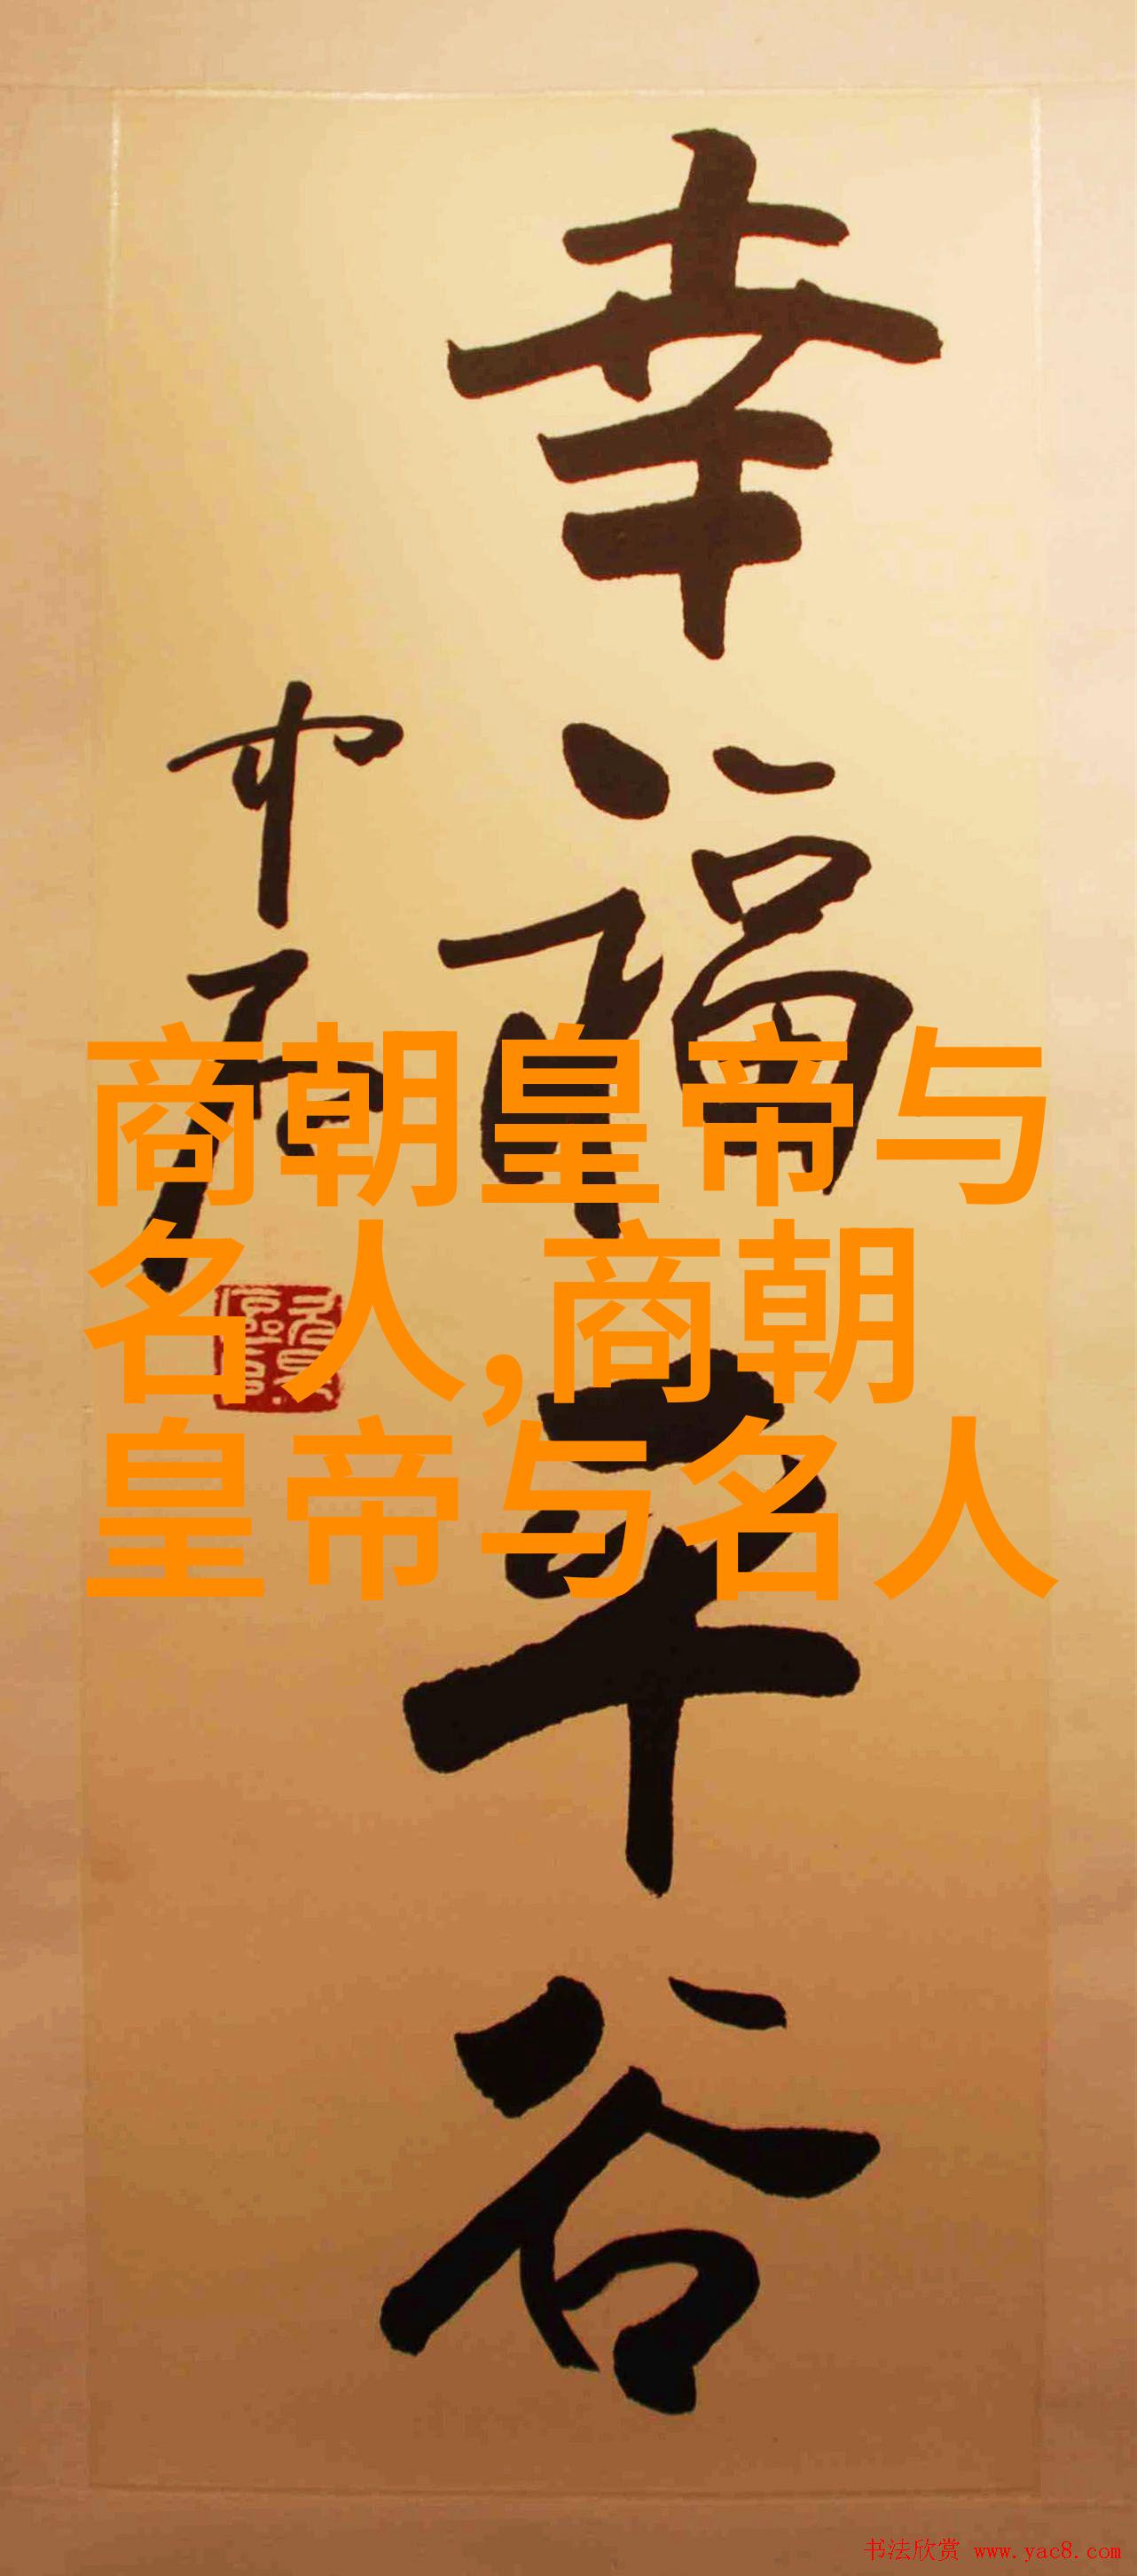 幸福平谷
商朝皇帝与
名人,商朝
皇帝与名人
书法欣赏 www.yac8.com